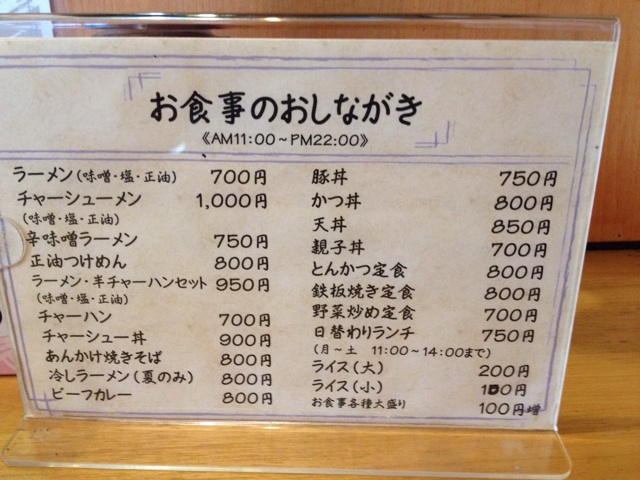 お食事のおしながき
《AM11:00～PM22:00》
ラーメン(味噌・塩・正油) 700円
チャーシューメン 1,000円
(味噌・塩・正油)
辛味噌ラーメン 750円
正油つけめん 800円
ラーメン・半チャーハンセット 950円
(味噌・塩・正油)
チャーハン 700円
チャーシュー丼 900円
あんかけ焼きそば 800円
冷しラーメン(夏のみ) 800円
ビーフカレー 800円
豚丼 750円
かつ丼 800円
天丼 850円
親子丼 700円
とんかつ定食 800円
鉄板焼き定食 800円
野菜炒め定食 700円
日替わりランチ 750円
(月～土 11:00～14:00まで)
ライス(大) 200円
ライス(小) 100円
お食事各種大盛り 100円増